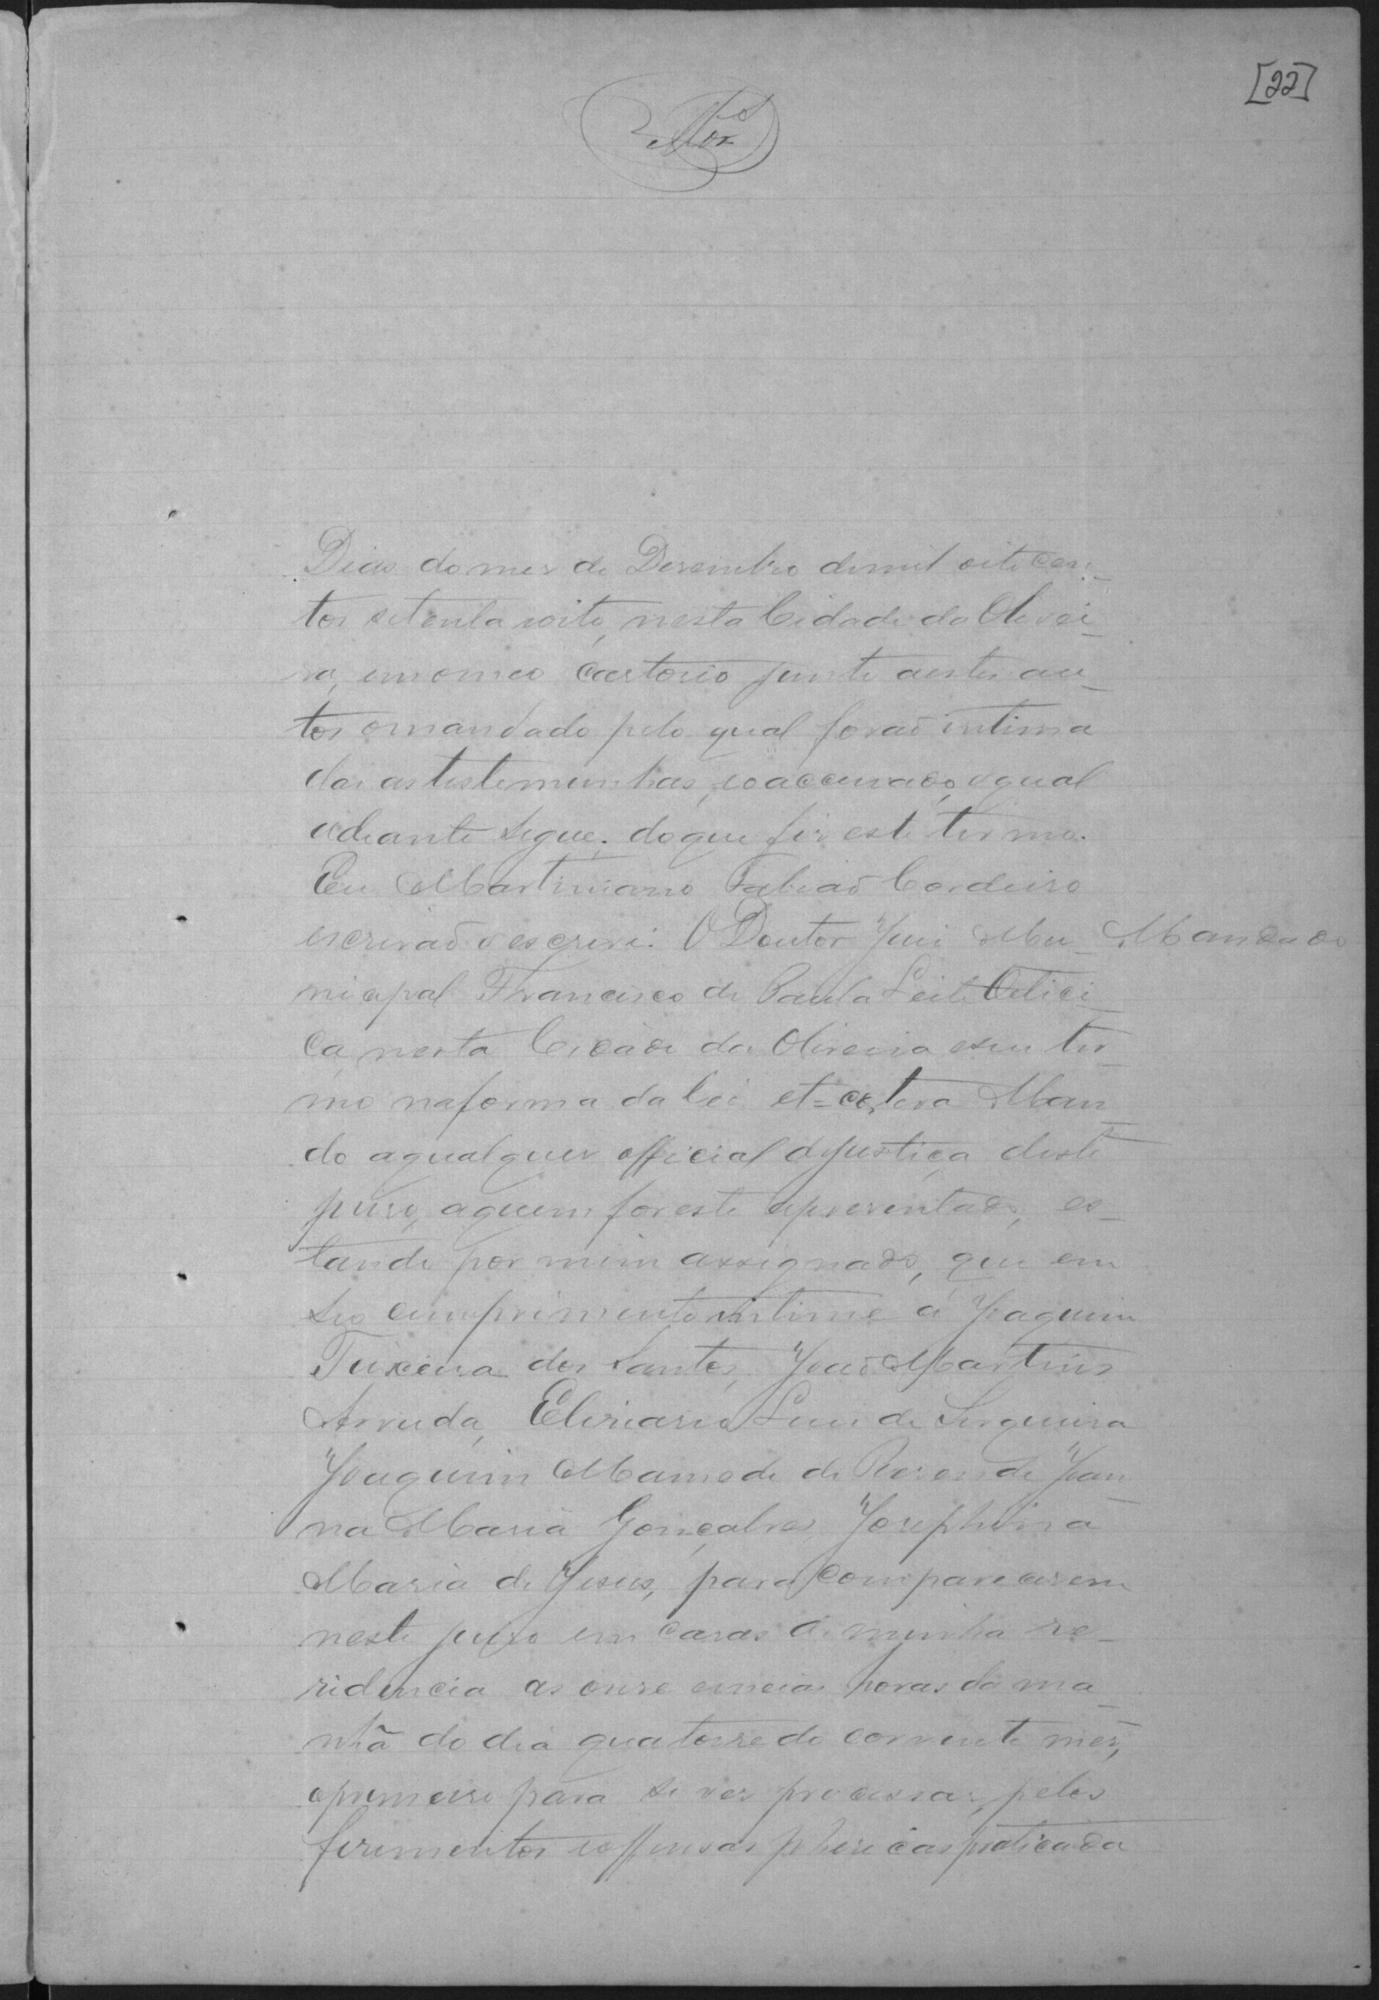 [22]
Dias do mes de Desembro de mil oito cen-
tos setenta e oito, nesta Cidade da Olivei-
ra, em o meo cartorio junto a estes au-
tos o mandado pelo qual foraõ intima
das as testemunhas, e o accusado, o qual
adiante segue. do que fiz este termo.
Eu Martiniano Fabiaõ Cordeiro
escrivaõ o escrevi. O Doutor Juis Mu-
Mandado
nicipal Francisco de Paula Leite Oitici-
ca, nesta Cidade da Oliveira e seu ter-
mo na forma da lei et-cetera Man-
do a qualquer official de justiça deste
juiso, a quem for este apresentado, es-
tando por mim assignado, que em
seo cumprimento intime a Joaquim
Teixeira dos Santos, Joaõ Martins
Arruda, Eliziario Luis de Serqueira
Joaquim Mamede de Resende Joan-
na Maria Gonçalves, Josephina
Maria de Jesus, para comparecerem
neste juiso em casas de minha re-
sidencia as onse e meia horas da ma-
nhã do dia quatorse do corrente mes,
o primeiro para se ver processar, pelos
ferimentos e offensas phisicas praticada